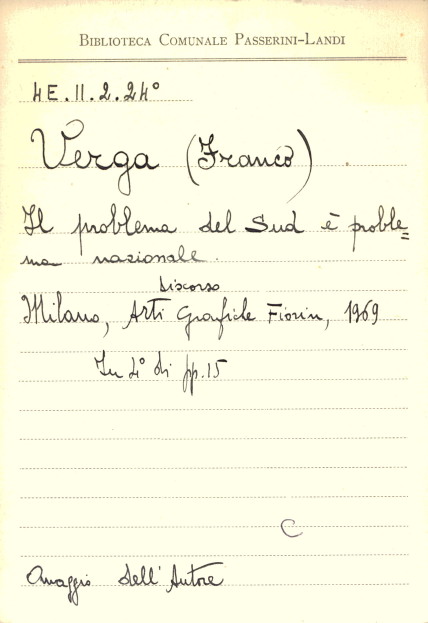 BIBLIOTECA COMUNALE PASSERINI-LANDI
4E.II.2.24°
Verga (Franco)
Il problema del Sud è proble=
ma nazionale.
Discorso
Milano, Arti Grafiche Fiorin, 1969
In 4° di pp. 15
C
Omaggio dell'Autore